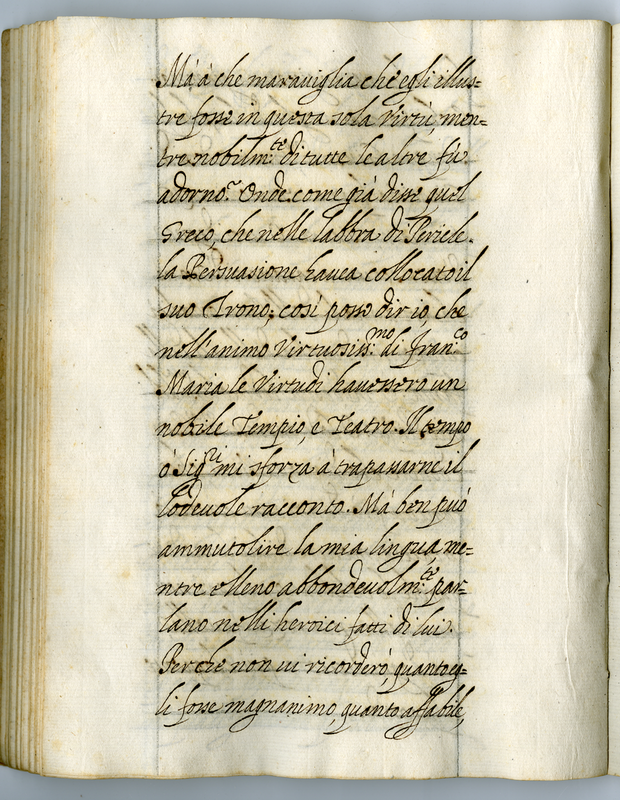 Má à che marauiglia ch'egli illus=
tre fosse in questa sola Virtù, men=
tre nobilm:te di tutte le altre fù
adorno? Onde come già disse quel
Greco, che nelle labbra di Pericle
la Persuasione hauea collocato il
suo Trono; così posso dir io che
nell'animo Virtuosiss:mo di Fran:co
Maria le Virtudi hauessero un
nobile Tempio, e Teatro. Il tempo
ó Sig:ri mi sforza à trapassarne il
lodeuole racconto. Má ben può
ammutolire la mia lingua, me=
ntre elleno abbondeuolm:te par=
lano nelli heroici fatti di lui.
Perche non ui ricorderò, quanto eg=
li fosse magnanimo, quanto affabile,